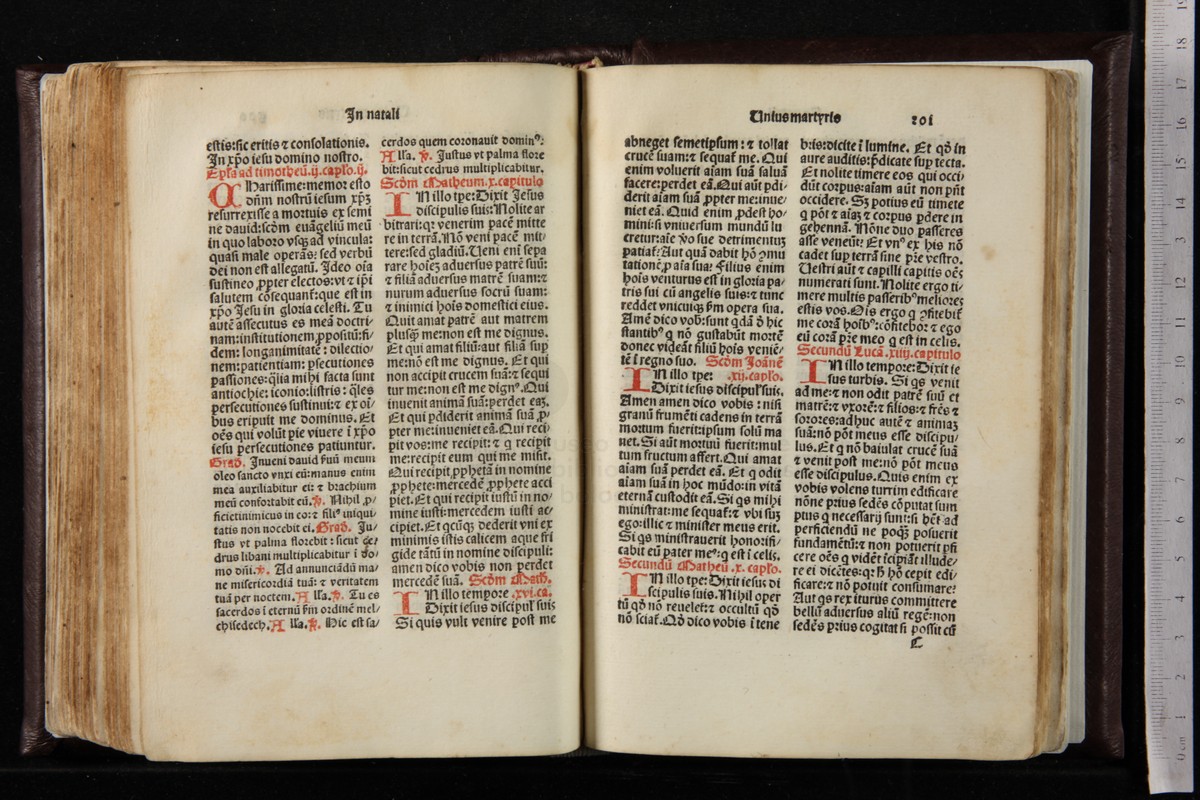 In natali
estis: sic eritis ⁊ consolationis.
In xp̄o iesu domino nostro.
Ep̄la ad timotheū.ij.caplo.ij.
CHarissime: memor esto
dn̄m nostrū iesum xp̄m
resurrexisse a mortuis ex semi
ne dauid: scd̄m euāgeliū meū
in quo laboro vsq̨ ad vincula:
quasi male operās: sed verbū
dei non est allegatū. Ideo oīa
sustineo ꝓpter electos: vt ⁊ ip̄i
salutem cōsequanť: que est in
xp̄o Jesu in gloria celesti. Tu
autē assecutus es meā doctri/
nam: institutionem, ꝓpositū: fi/
dem: longanimitatē: dilectio/
nem: patientiam: ꝑsecutiones
passiones: q̄lia mihi facta sunt
antiochie: iconio: listris: q̄les
persecutiones sustinui: ⁊ ex oī/
bus eripuit me dominus. Et
oēs qui volūt pie viuere ī xp̄o
iesu persecutiones patiuntur.
Grad. Inueni dauid ẜuū meum:
oleo sancto vnxi eū: manus enim
mea auxiliabitur ei: ⁊ brachium
meū confortabit eū. ℣. Nihil ꝓ/
ficiet inimicus in eo: ⁊ filiꝰ iniqui/
tatis non nocebit ei. Grad. Ju/
stus vt palma florebit: sicut ce/
drus libani multiplicabitur ī do/
mo dn̄i. ℣. Ad annunciādū ma/
ne misericordiā tuā: ⁊ veritatem
tuā per noctem. Alľa. ℣. Tu es
sacerdos ī eternū ẜm ordinē mel/
chisedech. Alľa. ℣. Hic est sa/
cerdos quem coronauit dominꝰ:
Alľa. ℣. Justus vt palma flore
bit: sicut cedrus multiplicabitur.
Scd̄m Matheum.x.capitulo
IN illo tp̄e: Dixit Jesus
discipulis suis: Nolite ar
bitrari: qꝛ venerim pacē mitte
re in terrā. Nō veni pacē mit/
tere: sed gladiū. Ueni enī sepa
rare hoīeꝫ aduersus patrē suū:
⁊ filiā aduersus matrē suam: ⁊
nurum aduersus socrū suam:
⁊ inimici hoīs domestici eius.
Qui amat patrē aut matrem
plusq̄ me: non est me dignus.
Et qui amat filiū: aut filiā sup
me: nō est me dignus. Et qui
non accipit crucem suā: ⁊ sequi
tur me: non est me dignꝰ. Qui
inuenit animā suā: perdet eaꝫ.
Et qui ꝑdiderit animā suā ꝓ/
pter me: inueniet eā. Qui reci/
pit vos: me recipit: ⁊ q̇ recipit
me: recipit eum qui me misit.
Qui recipit, ꝓphetā in nomine
ꝓphete: mercedē, ꝓphete acci
piet. Et qui recipit iustū in no/
mine iusti: mercedem iusti ac/
cipiet. Et qcūq̨ dederit vni ex
minimis istis calicem aque fri
gide tātū in nomine discipuli:
amen dico vobis non perdet
mercedē suā. Scd̄m Math.
IN illo tempore .xvi.ca.
Dixit iesus discipuľ suis
Si quis vult venire post me
Unius martyris
201
abneget semetipsum: ⁊ tollat
crucē suam: ⁊ sequať me. Qui
enim voluerit aīam suā saluā
facere: perdet eā. Qui aūt ꝑdi/
derit aīam suā ꝓpter me: inue/
niet eā. Quid enim, ꝓdest ho/
mini: si vniuersum mundū lu
cretur: aīe ꝟo sue detrimentuꝫ
patiať: Aut quā dabit hō ꝯmu
tationē, ꝓ aīa sua: Filius enim
hoīs venturus est in gloria pa/
tris sui cū angelis suis: ⁊ tunc
reddet vnicuiq̨ ẜm opera sua.
Amē dico vob: sunt qdā ð hic
stantibꝰ q̇ nō gustabūt mortē
donec videāt filiū hoīs veniē/
tē ī regno suo. Scd̄m Joānē
IN illo tp̄e: .xij.caplo.
Dixit iesus discipuľ suis.
Amen amen dico vobis: nisi
granū frumēti cadens in terrā
mortuum fuerit: ipsum solū ma
net. Si aūt mortuū fuerit: mul
tum fructum affert. Qui amat
aīam suā perdet eā. Et q̇ odit
aīam suā in hoc mūdo: in vitā
eternā custodit eā. Si qs mihi
ministrat: me sequať: ⁊ vbi suꝫ
ego: illic ⁊ minister meus erit.
Si qs ministrauerit honorifi/
cabit eū pater meꝰ: q̇ est ī celis.
Secundū Matheū .x. caplo.
IN illo tp̄e: Dixit iesus di
scipulis suis. Nihil oper
tū qð nō reueleť: ⁊ occultū qð
nō sciať. Qð dico vobis ī tene
bris: dicite ī lumine. Et qð in
aure auditis: p̄dicate sup tecta.
Et nolite timere eos qui occi/
dūt corpus: aīam aūt non pn̄t
occidere. Sꝫ potius eū timete
q̇ pōt ⁊ aīaꝫ ⁊ corpus ꝑdere in
gehennā. Nōne duo passeres
asse veneūt: Et vnꝰ ex his nō
cadet sup terrā sine pr̄e vestro.
Uestri aūt ⁊ capilli capitis oēs
numerati sunt. Nolite ergo ti/
mere multis passeribꝰ meliores
estis vos. Oīs ergo q̇ ꝯfitebiť
me corā hoībꝰ: cōfitebor ⁊ ego
eū corā pr̄e meo q̇ est in celis.
Secundū Lucā.xiiij.capitulo
IN illo tempore: Dixit ie
sus turbis. Si qs venit
ad me: ⁊ non odit patrē suū et
matrē: ⁊ vxorē: ⁊ filios: ⁊ fr̄es ⁊
sorores: adhuc autē ⁊ animaꝫ
suā: nō pōt meus esse discipu/
lus. Et q̇ nō baiulat crucē suā
⁊ venit post me: nō pōt meus
esse discipulus. Quis enim ex
vobis volens turrim edificare
nōne prius sedēs cōputat sum
ptus q̇ necessarij sunt: si h̄et ad
perficiendū ne poqꝫ posuerit
fundamētū: ⁊ non potuerit ꝑfi
cere oēs q̇ vidēt īcipiāt illude/
re ei dicētes: qꝛ h̄ hō cepit edi/
ficare: ⁊ nō potuit consumare?
Aut qs rex iturus committere
bellū aduersus aliū regē: non
sedēs prius cogitat si possit cū
C